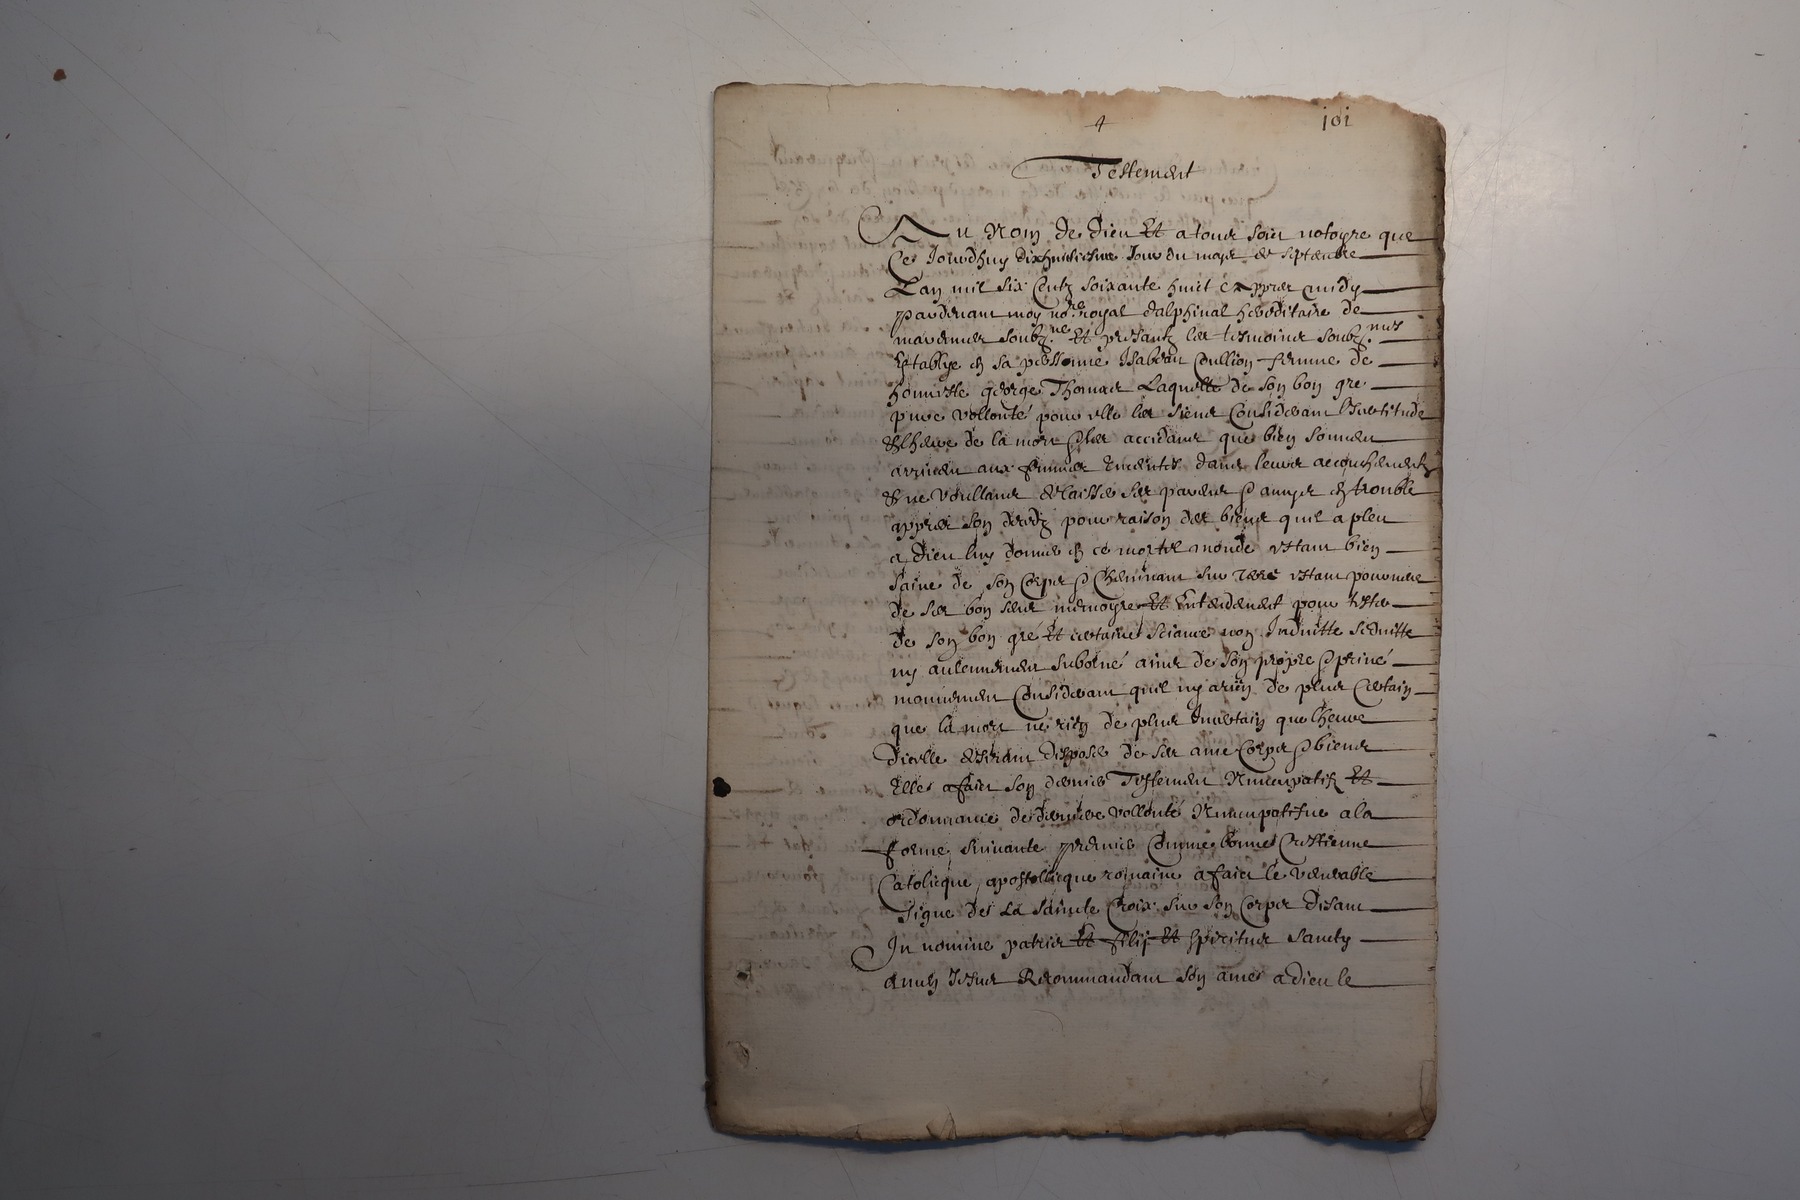 4
101
Testement
Au Nom de Dieu Et a tous soict notoyre que
Ce Jourdhuy dixhuictiesme Jour du moys de septembre
Lan mil six Centz soixante huict & appres midy
pardevant moy no.re royal dalphinal hereditaire de
soubz.ne Et presantz les tesmoins soubz.nes
Establye en sa personne Isabeau Coullion femme de
honneste george Thomas Laquelle de son bon gre
pure vollonté pour elle les siens Considerant lincertitude
& lheure de la mort & les accidans que bien souvent
arrivent aux femmes enceintes dans leurs accouchementz
& ne voullant delaisser ses parens & amys en trouble
appres son decedz pour raison des biens quil a pleu
a Dieu luy donner en ce mortel monde estant bien
saine de son Corps & Cheminant sur terre estant pourveue
de ses bon sens memoyre Et Entendement pour tester
de son bon gré Et certaine sciance non Induitte seduitte
ny aulcunement suborné ains de son propre & privé
mouvement Considerant quil ny a rien de plus Certain
que la mort ne rien de plus Incertain que lheure
dicelle desirant disposer de ses ame Corps & biens
Elle a faict son dernier Testement Nuncupatif Et
ordonnance de derniere vollonté Nuncupatifve a la
forme suivante premier Comme bonne Crestienne
Catolicque apostollicque romaine a faict le venerable
signe de La saincte Croix sur son Corps disant
In nomine patris Et filij Et spiritus sancty
amen Jesus Recommandant son ame a dieu le